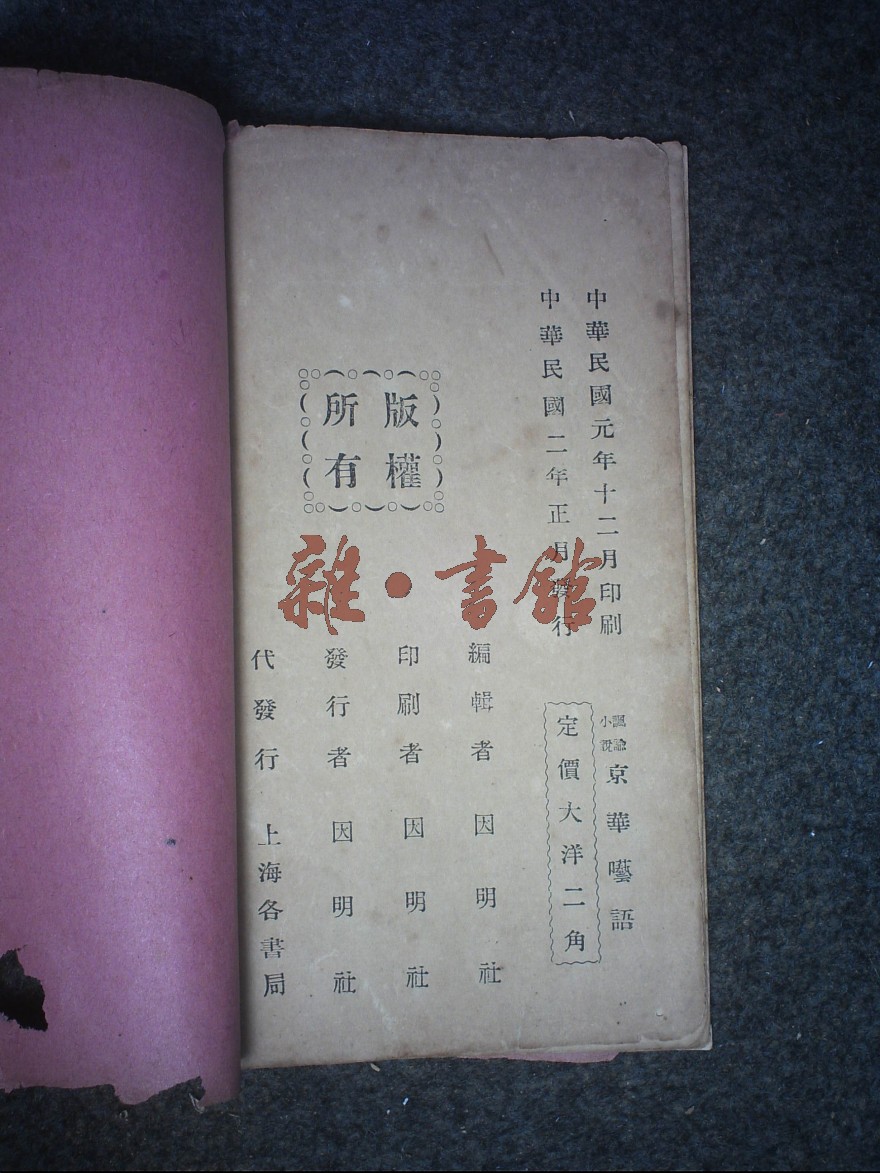 中華民國元年十二月印刷
中華民國二年正月發行
諷諭小說
京華囈語
定價大洋二角
版權
所有
編輯者 因明社
印刷者 因明社
發行者 因明社
代發行 上海各書局
雜·書館